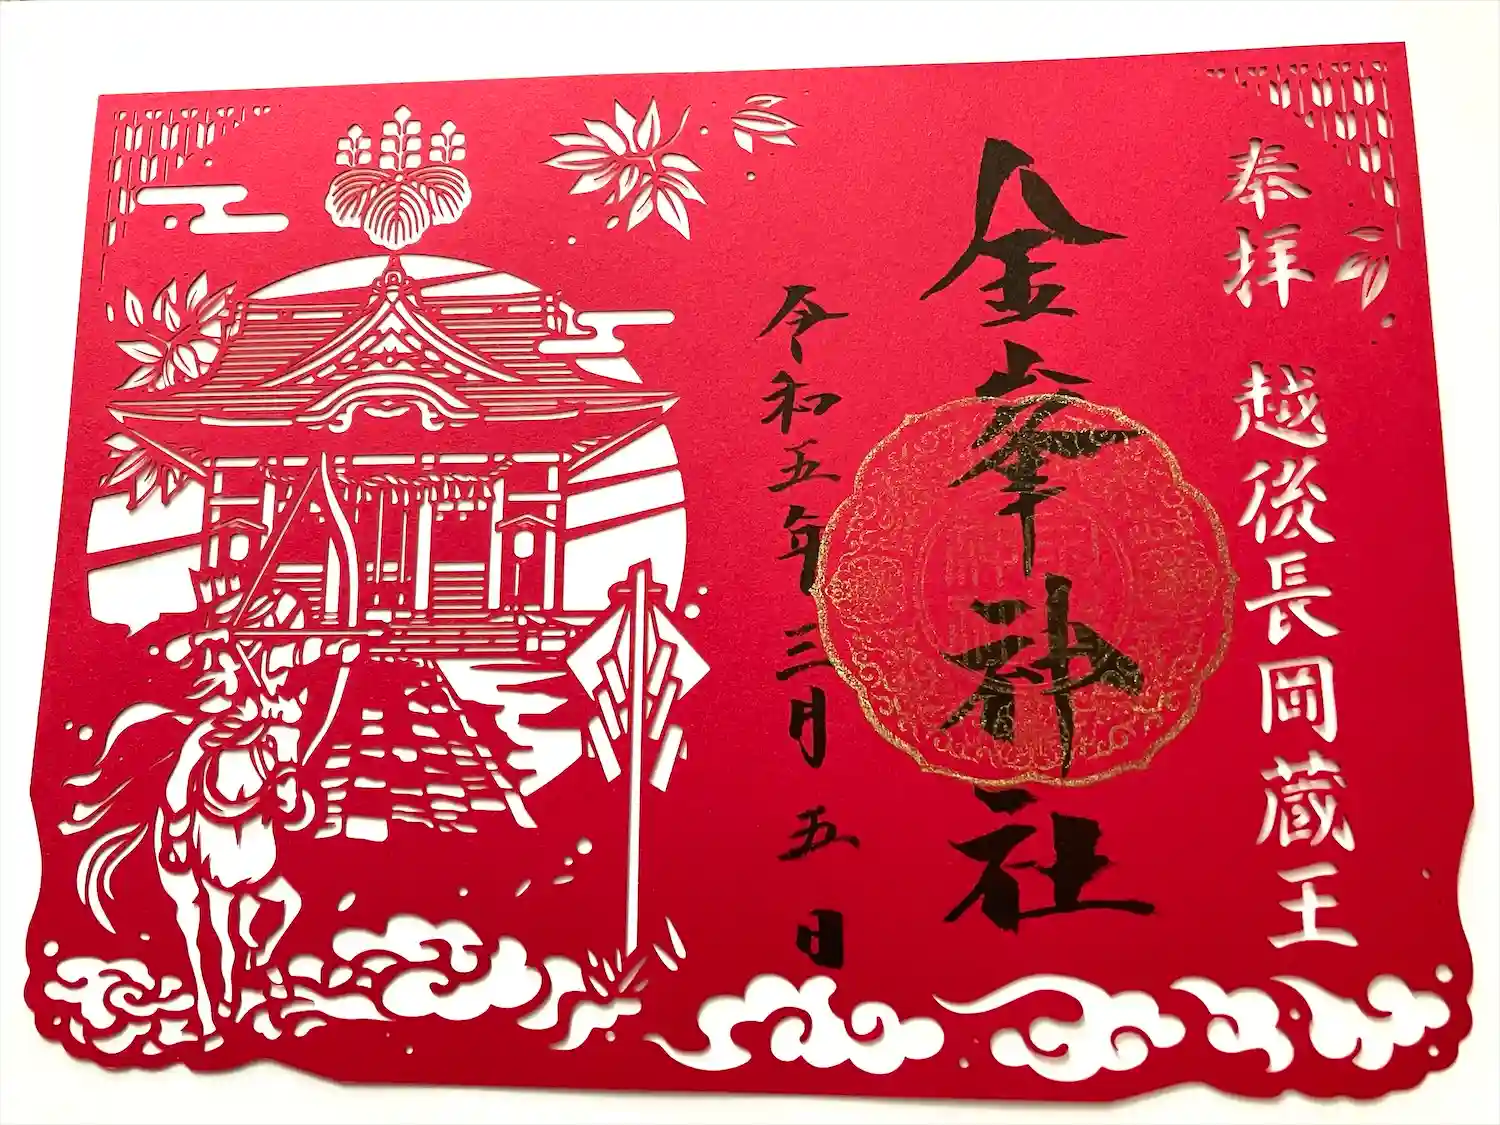 奉拝 越後長岡蔵王
金峯神社
令和五年三月五日